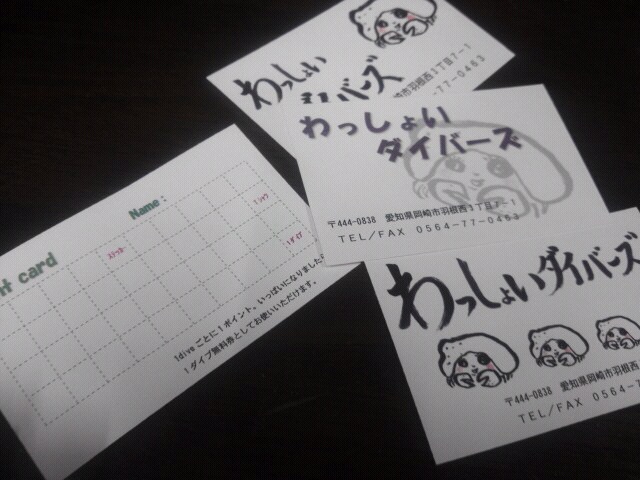 わっしょい
ダイバーズ
崎市羽根西3丁目7-1
77-0463
わっしょい
ダイバーズ
〒444-0838 愛知県岡崎市羽根西3丁目7-1
TEL/FAX 0564-77-0463
わっしょいダイバーズ
〒444-0838 愛知県岡崎市羽根西
TEL/FAX 0564-7
card
Name:
ステッカー
1diveごとに1ポイント、いっぱいになりました
1ダイブ無料券としてお使いいただけます。